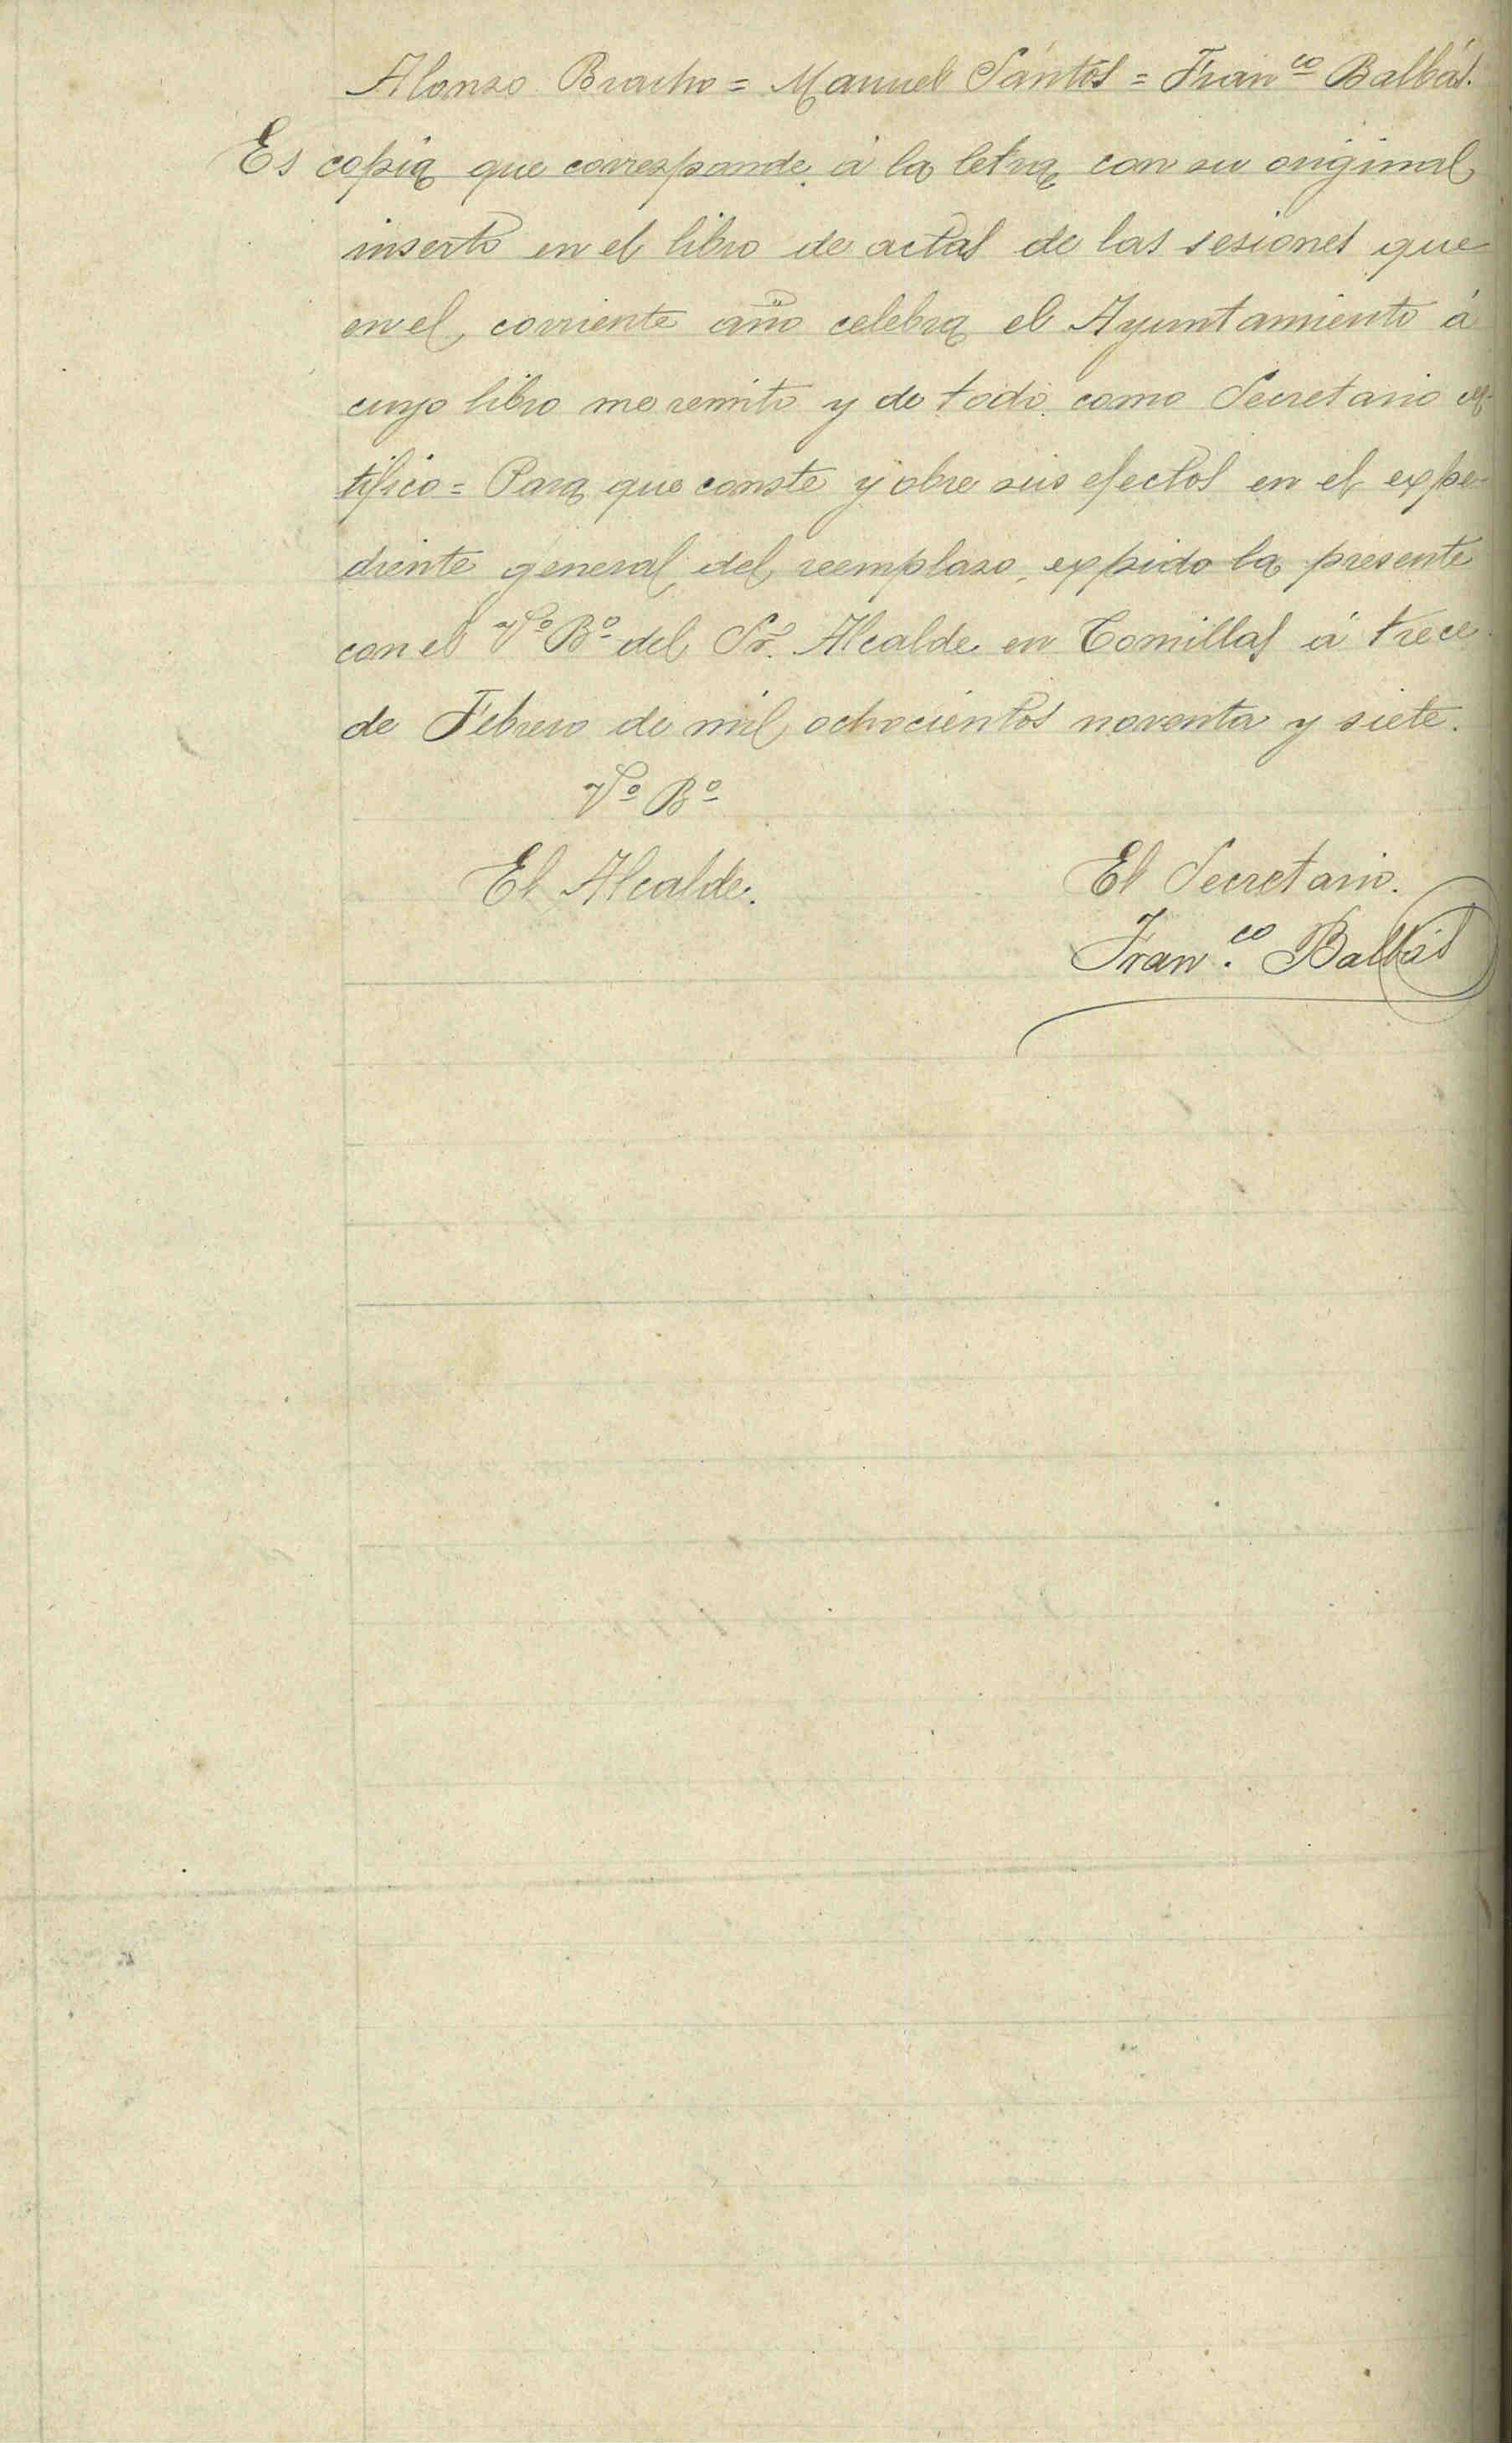 Alonso Bracho = Manuel Santos = Fran.co Balbás.
Es copia que corresponde á la letra con su original
inserto en el libro de actas de las sesiones que
en el corriente año celebra el Ayuntamiento á
cuyo libro me remito y de todo como Secretario cer-
tifico = Para que conste y obre sus efectos en el expe-
diente general del reemplazo, expido la presente
con el Vº Bº del Sr. Alcalde en Comillas á trece
de Febrero de mil ochocientos noventa y siete.
Vº Bº
El Alcalde.
El Secretario.
Fran.co Balbás